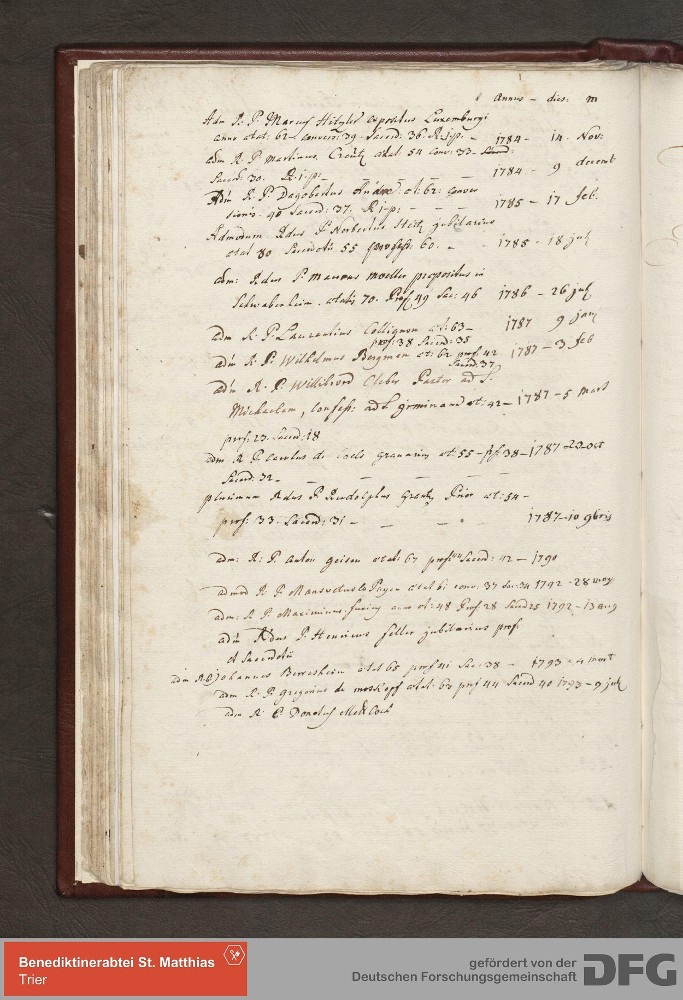 Annus - dies: m
Adm R. P. Marcus Hetzler expositus Luxemburgi
anno aetat: 62 - convers: 39 - Sacerd: 36. R.i.p: - 1784 - 14 - Nov:
adm R. P. Martinus Creutz aetat. 54 conv: 33 - Sacerd:
Sacerd: 30. R: i: p: - - - - 1784 - 9 decemb
Adm R. P. Dagobertus André aet: 62: conver
sionis 40 Sacerd: 37. R.i-p: - - - 1785 - 17 feb.
Admodum Rdus P Norbertus Heitz jubilarius
aetat 80 Sacerdotii 55 profess: 60. - 1785 - 18 july
adm: Rdus P: Maurus Moeller praepositus in
Schwabenheim. aetatis 70. Prof 49 Sac: 46 1786 - 26 july
adm R. P. Laurentius Collignon aet: 63 - 1787 9 jan
prof: 38 Sacerd: 35
adm R: P: Wilhelmus Bergman aet: 62 prof: 42 1787 - 3 feb
Sacerd: 37
adm R. P. Willibrord Cleber Pastor ad S:
Michaelem, Confess: ad S. Irminam aet: 42 - 1787 - 5 mart
prof: 23. Sacerd: 18
adm R P. Carolus de Coels granarius aet: 55 - prof 38 - 1787 - 23 oct
Sacerd: 32 - - - -
plurimum Rdus P Rudolphus Grentz Prior aet: 54 -
prof: 33. Sacerd: 31 - - - - 1787 - 10 9bris
adm: R: P. Anton geisen aetat: 67 prof: Sacerd: 42 - 1790
admd R. P. Mansuetus la Payen aetat 61 conv: 37 Sac: 34 1792 - 28 may
adm: R P. Maximinus anno aet: 48 Prof 28 Sacerd 25 1792 - 13 aug
adm Rdus P. Henricus feller jubilarius prof:
et Sacerdotii
adm R. P Johannes Berresheim aetat 65 prof 41 Sac: 38 - 1793 - 4 mart
adm R. P. Gregorius de Moskopf aetat: 63 prof 44 Sacerd 40 1793 - 9 july
adm R. P. Donatus
Benediktinerabtei St. Matthias
Trier
gefördert von der
Deutschen Forschungsgemeinschaft
DFG